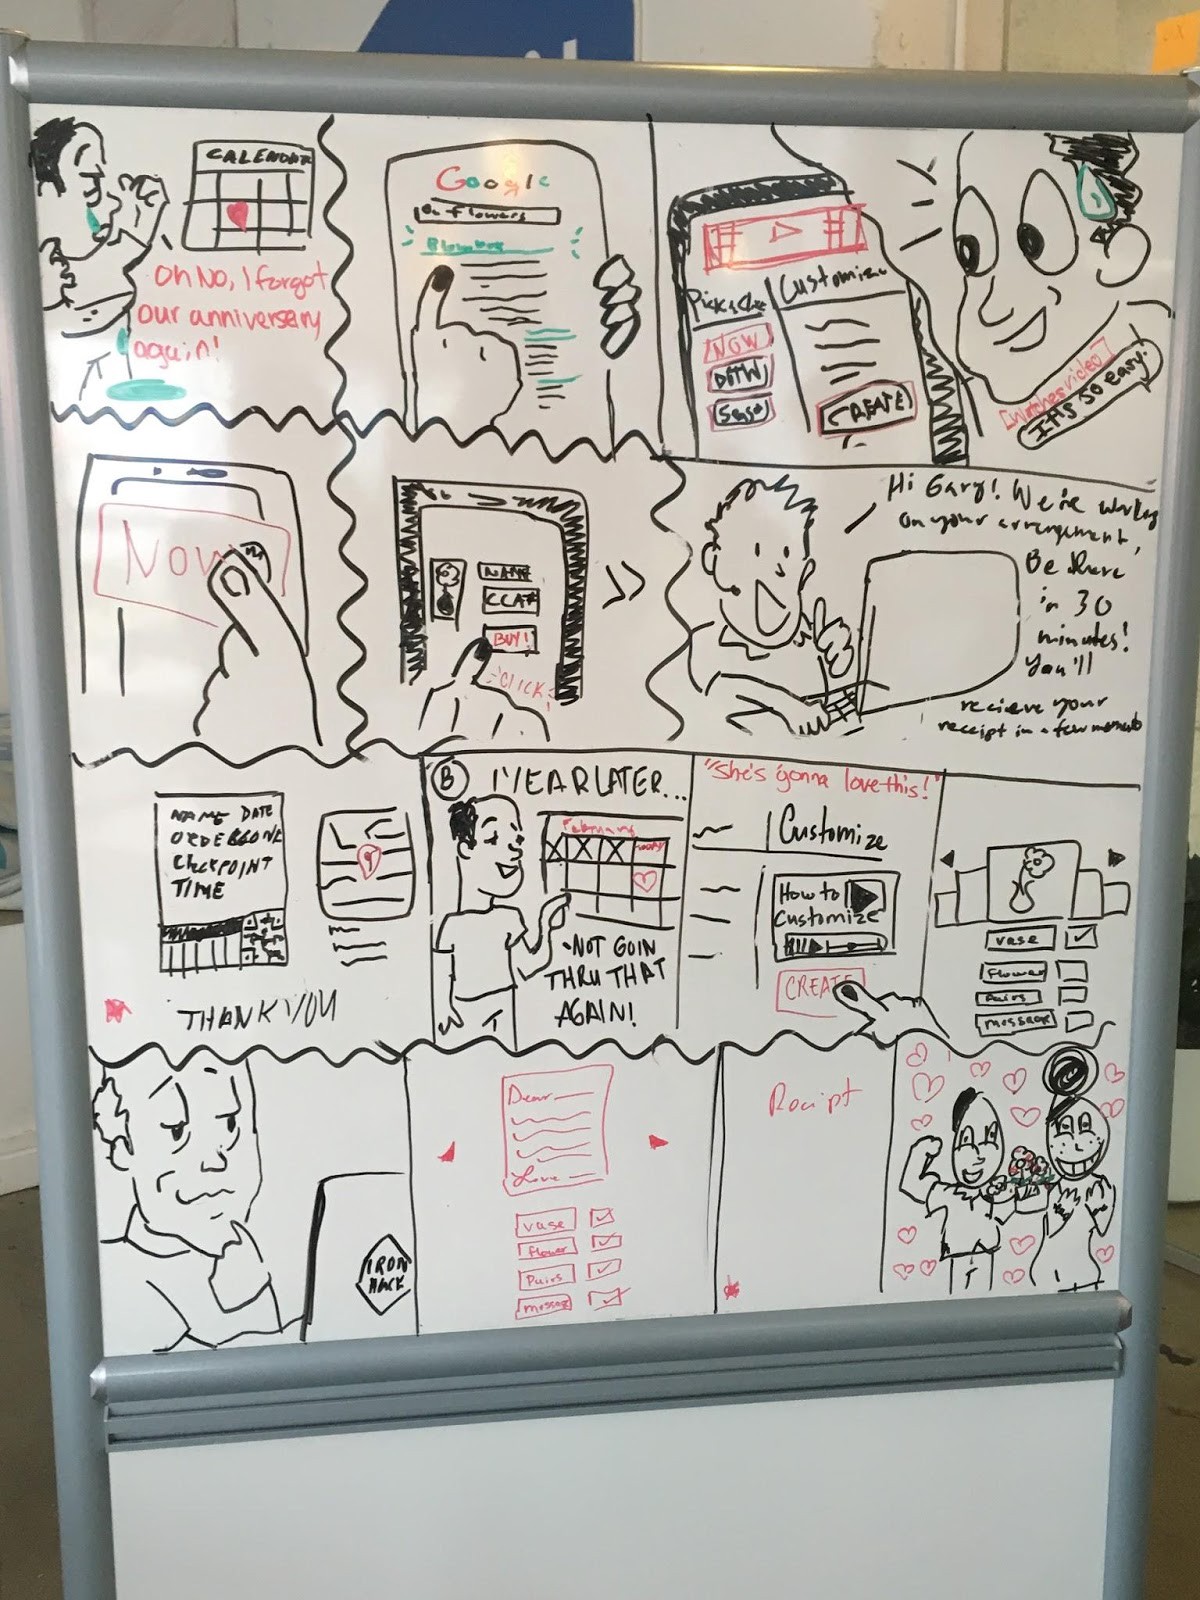 CALENDAR
Oh No, I forgot
our anniversary
again!
Google
flowers
Customize
NOW
DOTW
CREATE
[Watches video]
It's so easy.
Now
NAME
BUY!
CLICK
Hi Gary! We're working
on your arrangement,
Be there
in 30
minutes!
You'll
recieve your
receipt in a few moments
NAME DATE
CHECKPOINT
TIME
THANK YOU
B
1 YEAR LATER...
February
TODAY
-NOT GOIN
THRU THAT
AGAIN!
"She's gonna love this!"
Customize
How to
Customize
CREATE
vase
flower
pairs
message
IRON
HACK
Dear
Love
vase
flower
pairs
message
Receipt